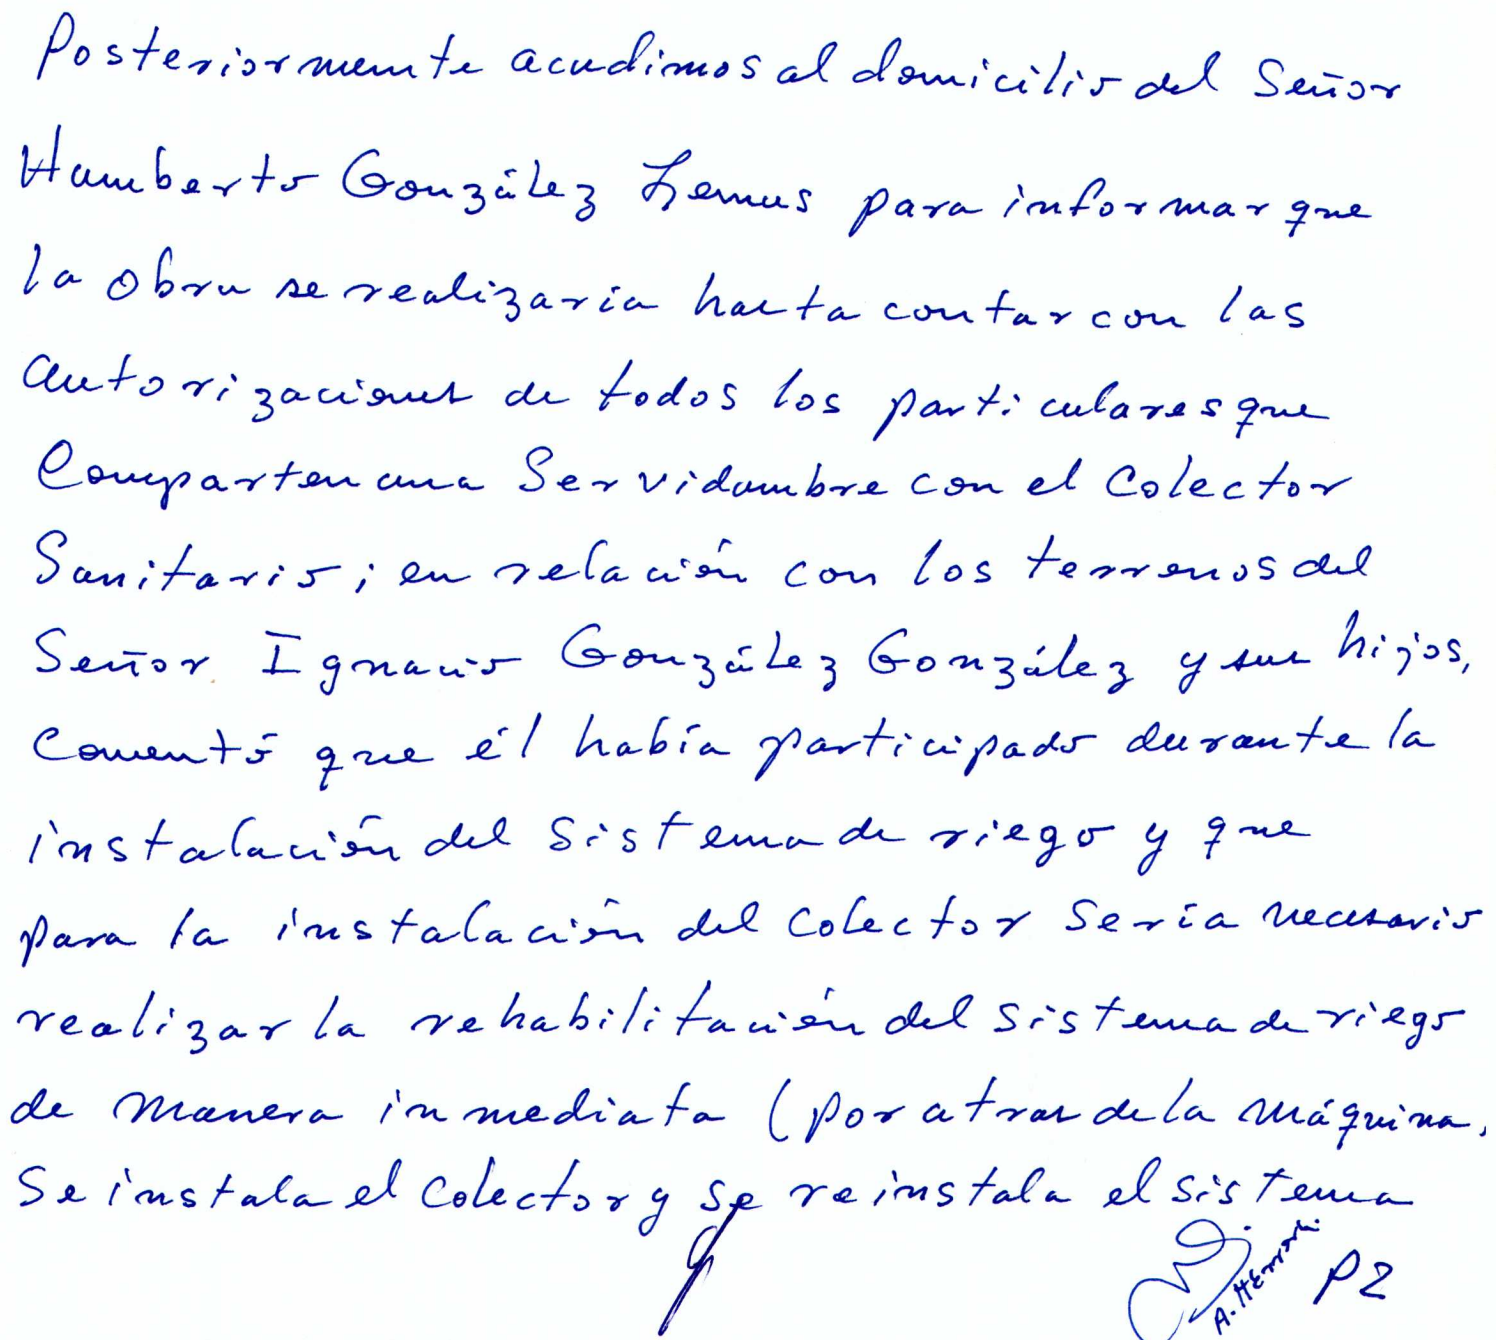 Posteriormente acudimos al domicilio del Señor
Humberto González Lemus para informar que
la obra se realizaría hasta contar con las
autorizaciones de todos los particulares que
Comparten una Servidumbre con el Colector
Sanitario; en relación con los terrenos del
Señor Ignacio González González y sus hijos,
Comentó que él había participado durante la
instalación del Sistema de riego y que
para la instalación del Colector Sería necesario
realizar la rehabilitación del sistema de riego
de manera inmediata (por atras de la máquina,
Se instala el Colector y se reinstala el sistema
P2